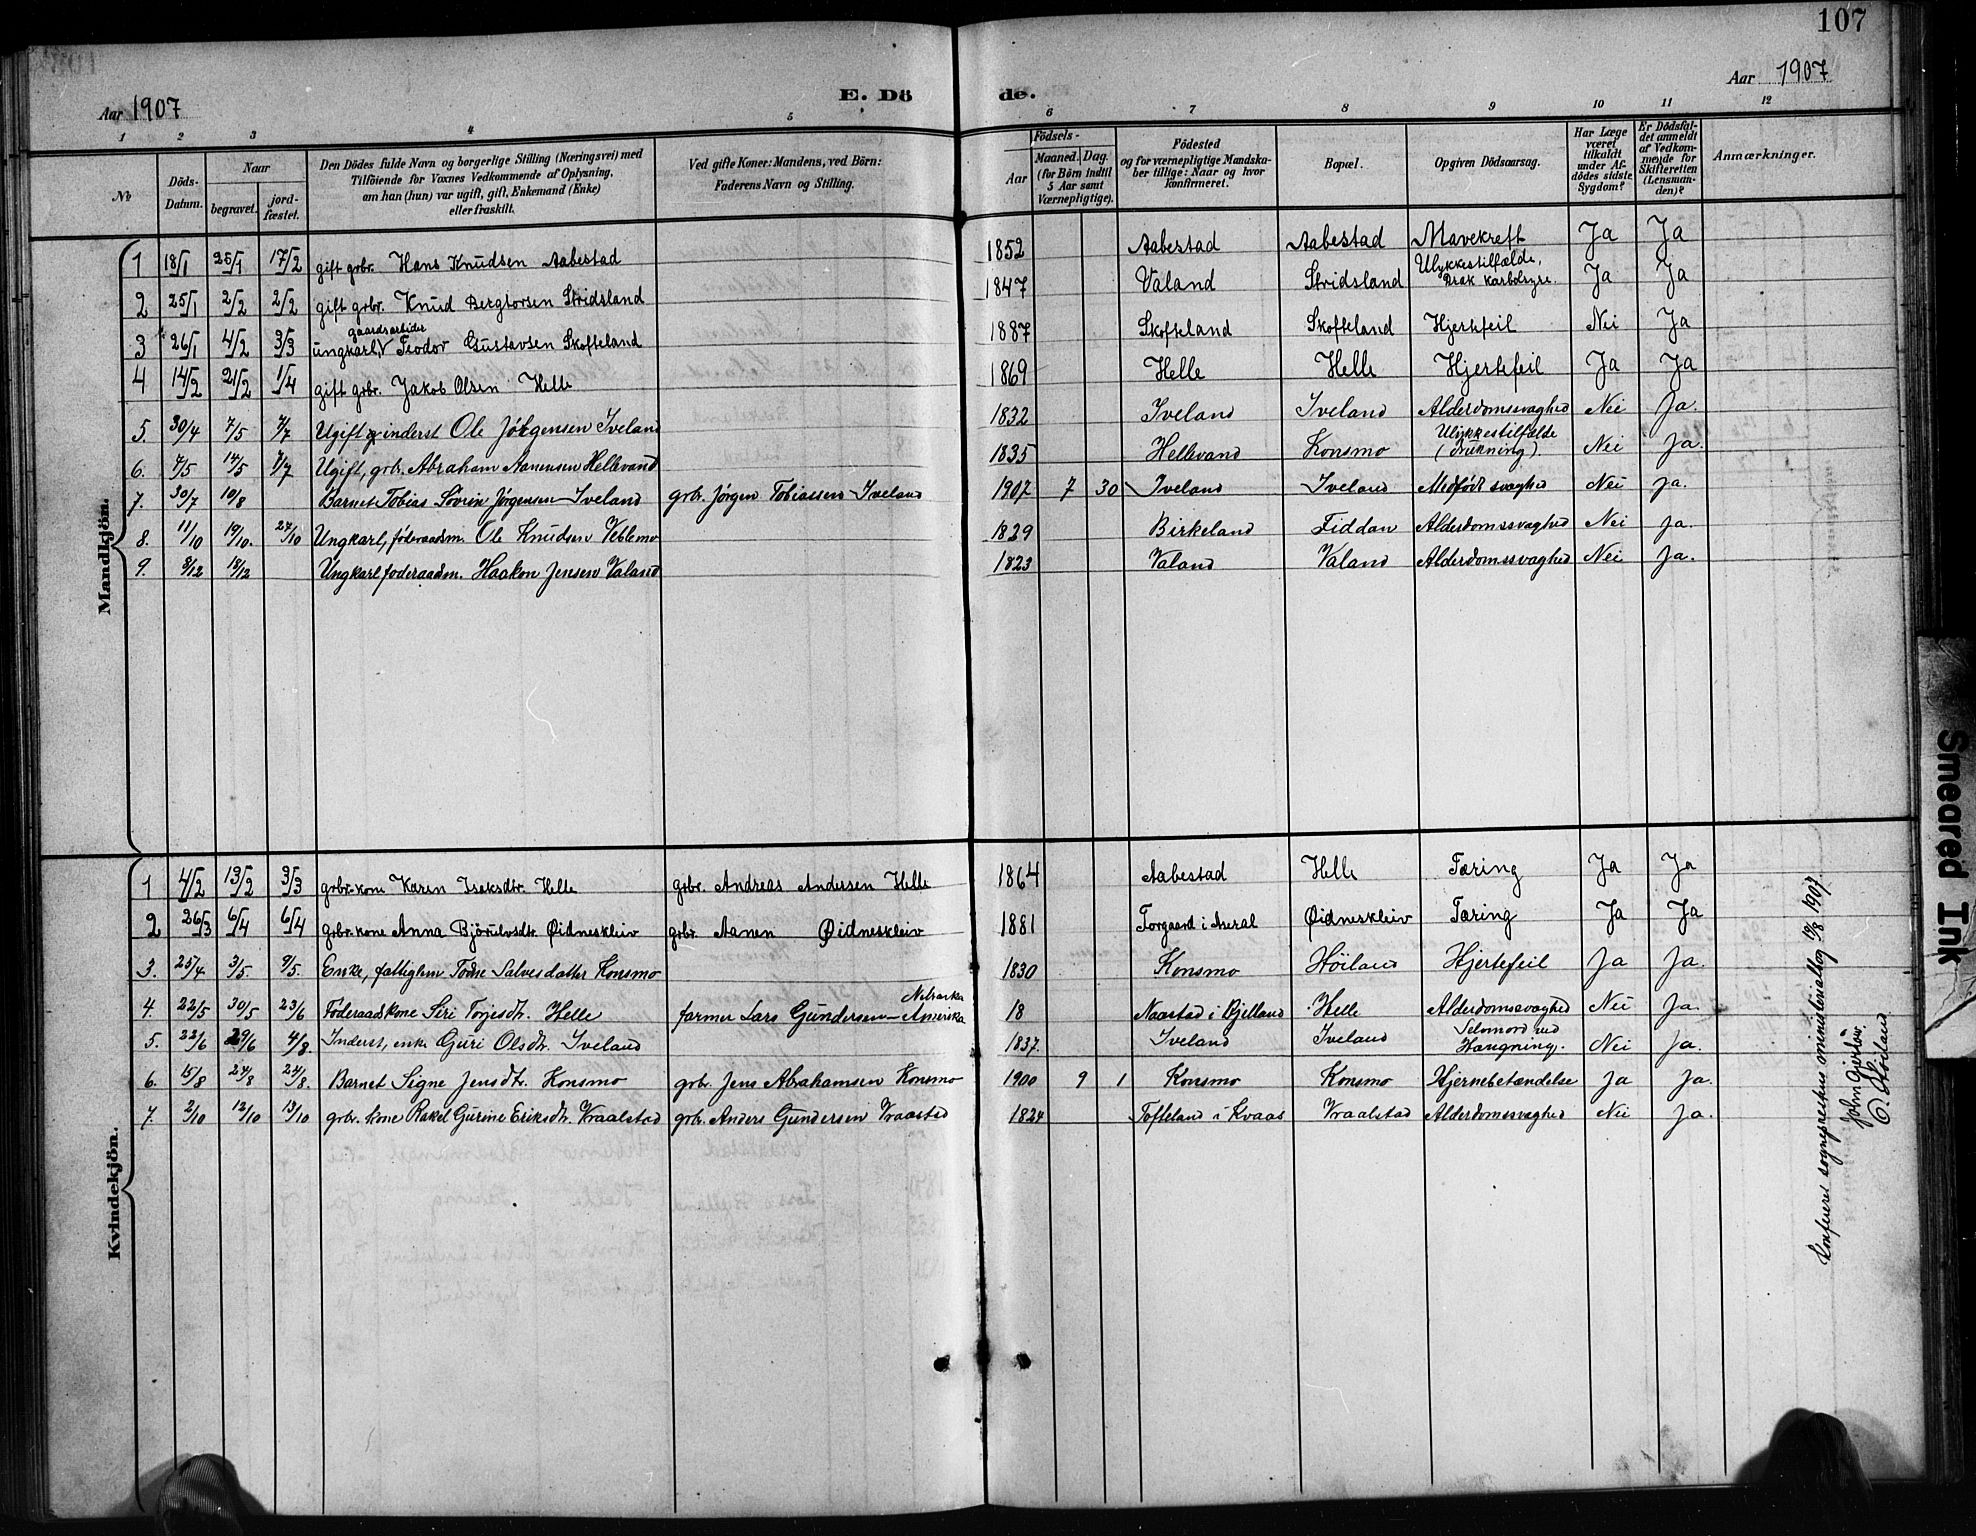 107
Aar 1907
E. Dö de.
Aar 1907
1 2 3 4 5 6 7 8 9 10 11 12
No
Döds-Datum.
Naar
begravet.
jord-fæstet.
Den Dödes fulde Navn og borgerlige Stilling (Næringsvei) med
Tilföiende for Voxnes Vedkommende af Oplysning,
om han (hun) var ugift, gift, Enkemand (Enke)
eller fraskilt.
Ved gifte Koner: Mandens, ved Börn:
Faderens Navn og Stilling.
Födsels-
Aar
Maaned. Dag.
(for Börn indtil
5 Aar samt
Værnepligtige).
Födested
og for værnepligtige Mandska-
ber tillige: Naar og hvor
konfirmeret.
Bopæl.
Opgiven Dödsaarsag.
Har Læge
været
tilkaldt
under Af-
dödes sidste
Sygdom?
Er Dödsfal-
det anmeldt
af Vedkom-
mende for
Skifteretten
(Lensman-
den)?
Anmærkninger.
Mandkjön.
1 18/1 25/1 17/2 gift grbr. Hans Knudsen Aabestad 1852 Aabestad Aabestad Mavekreft Ja Ja
2 25/1 2/2 2/2 gift grbr. Knud Bergtorsen Stridsland 1847 Valand Stridsland Ulykkestilfælde, Drak karbolsyre. Ja Ja
3 26/1 4/2 3/3 ungkarl, gaardsarbider Teodor Gustavsen Skofteland 1887 Skofteland Skofteland Hjertefeil Nei Ja
4 14/2 21/2 1/4 gift grbr. Jakob Olsen Helle 1869 Helle Helle Hjertefeil Ja Ja
5. 30/4 7/5 7/7 Ugift inderst Ole Jörgensen Iveland 1832 Iveland Iveland Alderdomssvaghed Nei Ja.
6. 7/5 14/5 7/7 Ugift, grbr. Abraham Aanensen Hellevand 1835 Hellevand Konsmo Ulykkestilfælde (Drukning). Nei Ja.
7. 30/7 10/8 Barnet Tobias Sövrin Jørgensen Iveland grbr. Jørgen Tobiassen Iveland 1907 7 30 Iveland Iveland Medfödt svaghed Nei Ja.
8. 11/10 19/10. 27/10 Ungkarl, føderaadsm. Ole Knudsen Veblemo 1829 Birkeland Fiddan Alderdomssvaghed Nei Ja.
9. 8/12 18/12 Ungkarl foderaadm. Haakon Jensen Valand 1823 Valand Valand Alderdomssvaghed Nei Ja.
Kvindekjön.
1 4/2 13/2 3/3 grbr.-kone Karen Isaksdtr. Helle grbr. Andreas Andersen Helle 1864 Aabestad Helle Tæring Ja Ja
2 26/3 6/4 6/4 grbr.-kone Anna Björulvsdtr. Øidneskleiv grbr. Aanen Øidneskleiv 1881 Torgaard i Aseral Øidneskleiv Tæring Ja Ja
3. 25/4 3/5. 9/5. Enke, fattiglem Todne Salvesdatter Konsmo 1830 Konsmo Höiland Hjertefeil Ja Ja.
4. 22/5 30/5 23/6 Föderaadskone Siri Torjesdtr. Helle farmer Lars Gundersen – Nebraska Amerika 18 Naastad i Bjelland Helle Alderdomssvaghed Nei Ja.
5. 22/6 29/6 4/8. Inderst, enke Guri Olsdtr. Iveland 1837. Iveland Iveland Selvmord ved Hængning. Nei Ja.
6. 15/8 24/8 24/8. Barnet Signe Jensdtr. Konsmo grbr. Jens Abrahamsen Konsmo 1900 9 1 Konsmo Konsmo Hjernebetændelse Ja Ja.
7. 2/10 12/10 13/10 grbr. kone Rakel Gurine Eriksdtr. Vraalstad grbr. Anders Gundersen Vraastad 1824 Tofteland i Kvaas Vraalstad Alderdomssvaghed Nei Ja.
Konfereret sogneprestens ministerialbog /8 1907.
John Gjerløw.
O. Skofteland
Smeared Ink